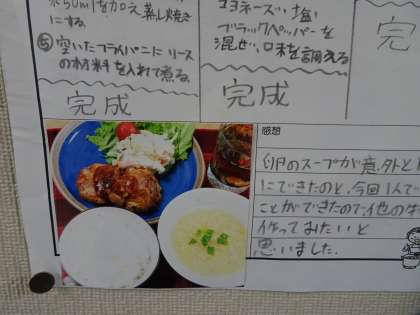 水50mlを加え蒸し焼き
にする。
⑤空いたフライパンにソース
の材料を入れて煮る。
完成
マヨネーズ、塩、
ブラックペッパーを
混ぜ、味を調える
完成
完
感想
卵のスープが意外と
にできたのと、今回1人で
ことができたので、他の
作ってみたいと
思いました。